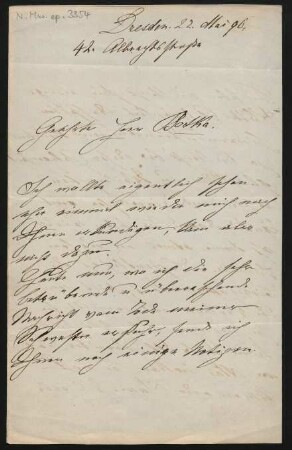 N. Mus. ep. 3254
Dresden. 22. Mai 96.
42. Albrechtstraße
Geehrter Herr
Ich wollte eigentlich schon
mich nach
Ihnen erkundigen, kam aber
nicht dazu.
Heute nun, wo ich die sehr
betrübende u. überraschende
Nachricht vom Tode meiner
Schwester erhielt, sende ich
Ihnen noch einige Notizen